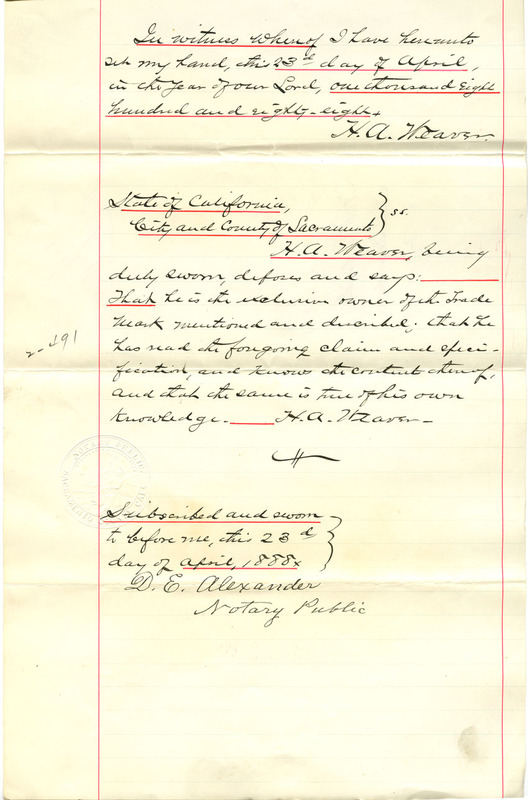 In witness whereof I have hereunto
set my hand, this 23d day of April,
in the Year of our Lord, one thousand eight
hundred and eighty-eight.
H. A. Weaver.
State of California,
City and County of Sacramento } ss.
H. A. Weaver, being
duly sworn, deposes and says:
That he is the exclusive owner of the Trade
Mark mentioned and described; that he
has read the foregoing claim and speci-
fication, and knows the content thereof,
and that the same is true of his own
knowledge. H. A. Weaver-
2-491
Subscribed and sworn
to before me, this 23d
day of April, 1888.
D. E. Alexander
Notary Public